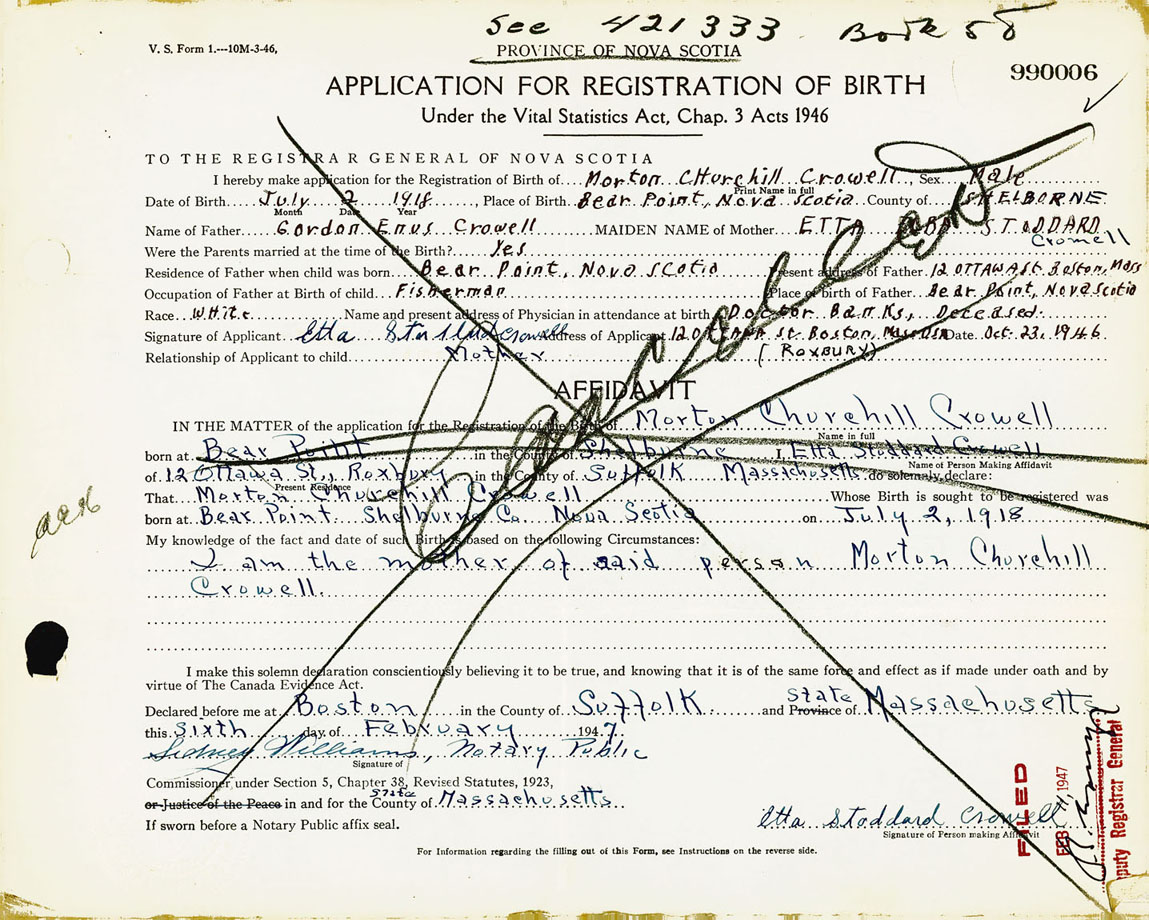 See 421333 Book 58
V. S. Form 1.---10M-3-46,
PROVINCE OF NOVA SCOTIA
990006
APPLICATION FOR REGISTRATION OF BIRTH
Under the Vital Statistics Act, Chap. 3 Acts 1946
TO THE REGISTRAR GENERAL OF NOVA SCOTIA
I hereby make application for the Registration of Birth of.... Morton Churchill Crowell, Sex Male
Print Name in full
Date of Birth July 2 1918, Place of Birth Bear Point, Nova Scotia County of SHELBORNE
Month Date Year
Name of Father Gordon Enus Crowell MAIDEN NAME of Mother ETTA STODDARD
Crowell
Were the Parents married at the time of the Birth? Yes
Residence of Father when child was born Bear Point, Nova Scotia Present address of Father 12 OTTAWA St. Boston, Mass
Occupation of Father at Birth of child Fisherman Place of birth of Father Bear Point, Nova Scotia
Race White Name and present address of Physician in attendance at birth Doctor Banks, Deceased.
Signature of Applicant Etta Stoddard Crowell Address of Applicant 12 OTTAWA St. Boston, Mass USA Date Oct. 23, 1946
Relationship of Applicant to child Mother (ROXBURY)
Cancelled
AFFIDAVIT
IN THE MATTER of the application for the Registration of the Birth of Morton Churchill Crowell
Name in full
born at Bear Point in the County of Shelburne I, Etta Stoddard Crowell
Name of Person Making Affidavit
of 12 Ottawa St., Roxbury in the County of Suffolk Massachusetts do solemnly declare:
Present Residence
That Morton Churchill Crowell Whose Birth is sought to be registered was
born at Bear Point Shelburne Co Nova Scotia on July 2, 1918
My knowledge of the fact and date of such Birth is based on the following Circumstances:
I am the mother of said person Morton Churchill
Crowell.
I make this solemn declaration conscientiously believing it to be true, and knowing that it is of the same force and effect as if made under oath and by
virtue of The Canada Evidence Act.
Declared before me at Boston in the County of Suffolk and Province of State Massachusetts
this Sixth day of February 1947
Sidney Williams, Notary Public
Signature of
Commissioner under Section 5, Chapter 38, Revised Statutes, 1923,
or Justice of the Peace in and for the County of State Massachusetts
If sworn before a Notary Public affix seal.
Etta Stoddard Crowell
Signature of Person making Affidavit
For Information regarding the filling out of this Form, see Instructions on the reverse side.
FILED
FEB 1947
Deputy Registrar General